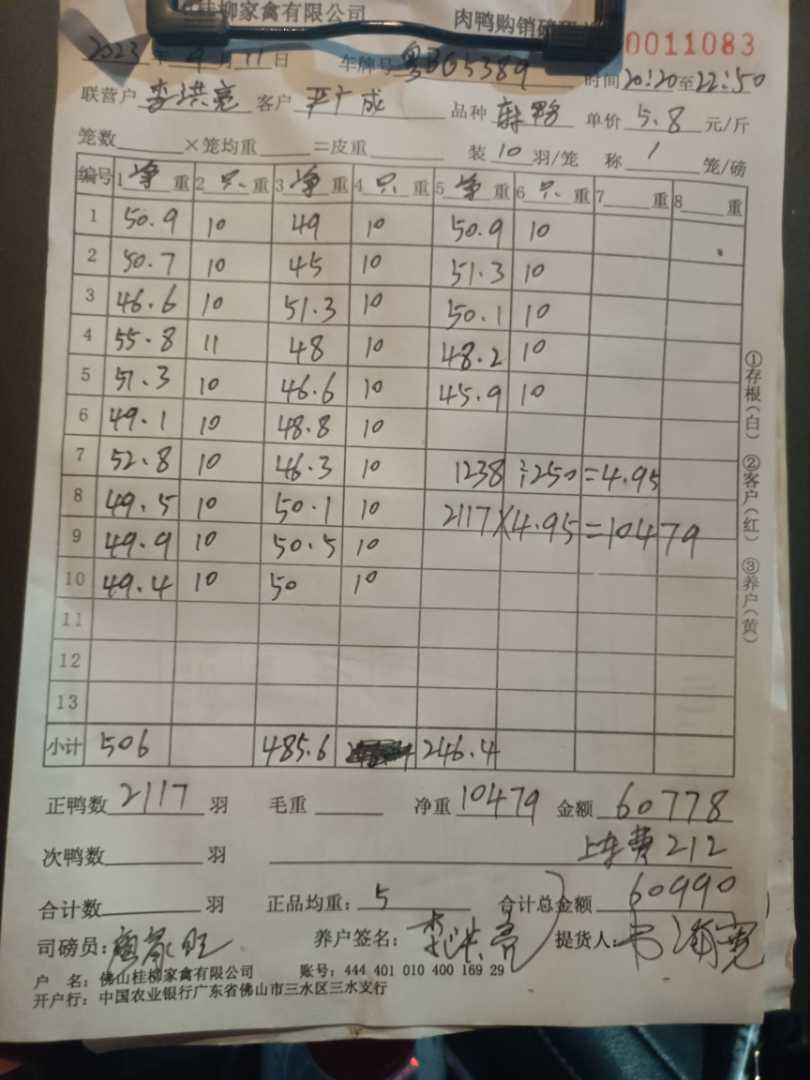 桂柳家禽有限公司 肉鸭购销确 0011083
2023年9月11日 车牌号 粤BG5389 时间20:20至22:50
联营户 李洪亮 客户 严广成 品种 麻鸭 单价 5.8 元/斤
笼数 ×笼均重 =皮重 装 10 羽/笼 称 1 笼/磅
编号 1 净 重 2 只 重 3 净 重 4 只 重 5 净 重 6 只 重 7 重 8 重
1 50.9 10 49 10 50.9 10
2 50.7 10 45 10 51.3 10
3 46.6 10 51.3 10 50.1 10
4 55.8 11 48 10 48.2 10
5 51.3 10 46.6 10 45.9 10
6 49.1 10 48.8 10
7 52.8 10 46.3 10 1238 ÷250=4.95
8 49.5 10 50.1 10 2117×4.95=10479
9 49.9 10 50.5 10
10 49.4 10 50 10
11
12
13
小计 506 485.6 246.4
①存根(白) ②客户(红) ③养户(黄)
正鸭数 2117 羽 毛重 净重 10479 金额 60778
次鸭数 羽 上车费 212
合计数 羽 正品均重: 5 合计总金额 60990
司磅员: 养户签名: 李洪亮 提货人:
户 名: 佛山桂柳家禽有限公司 账号: 444 401 010 400 169 29
开户行: 中国农业银行广东省佛山市三水区三水支行